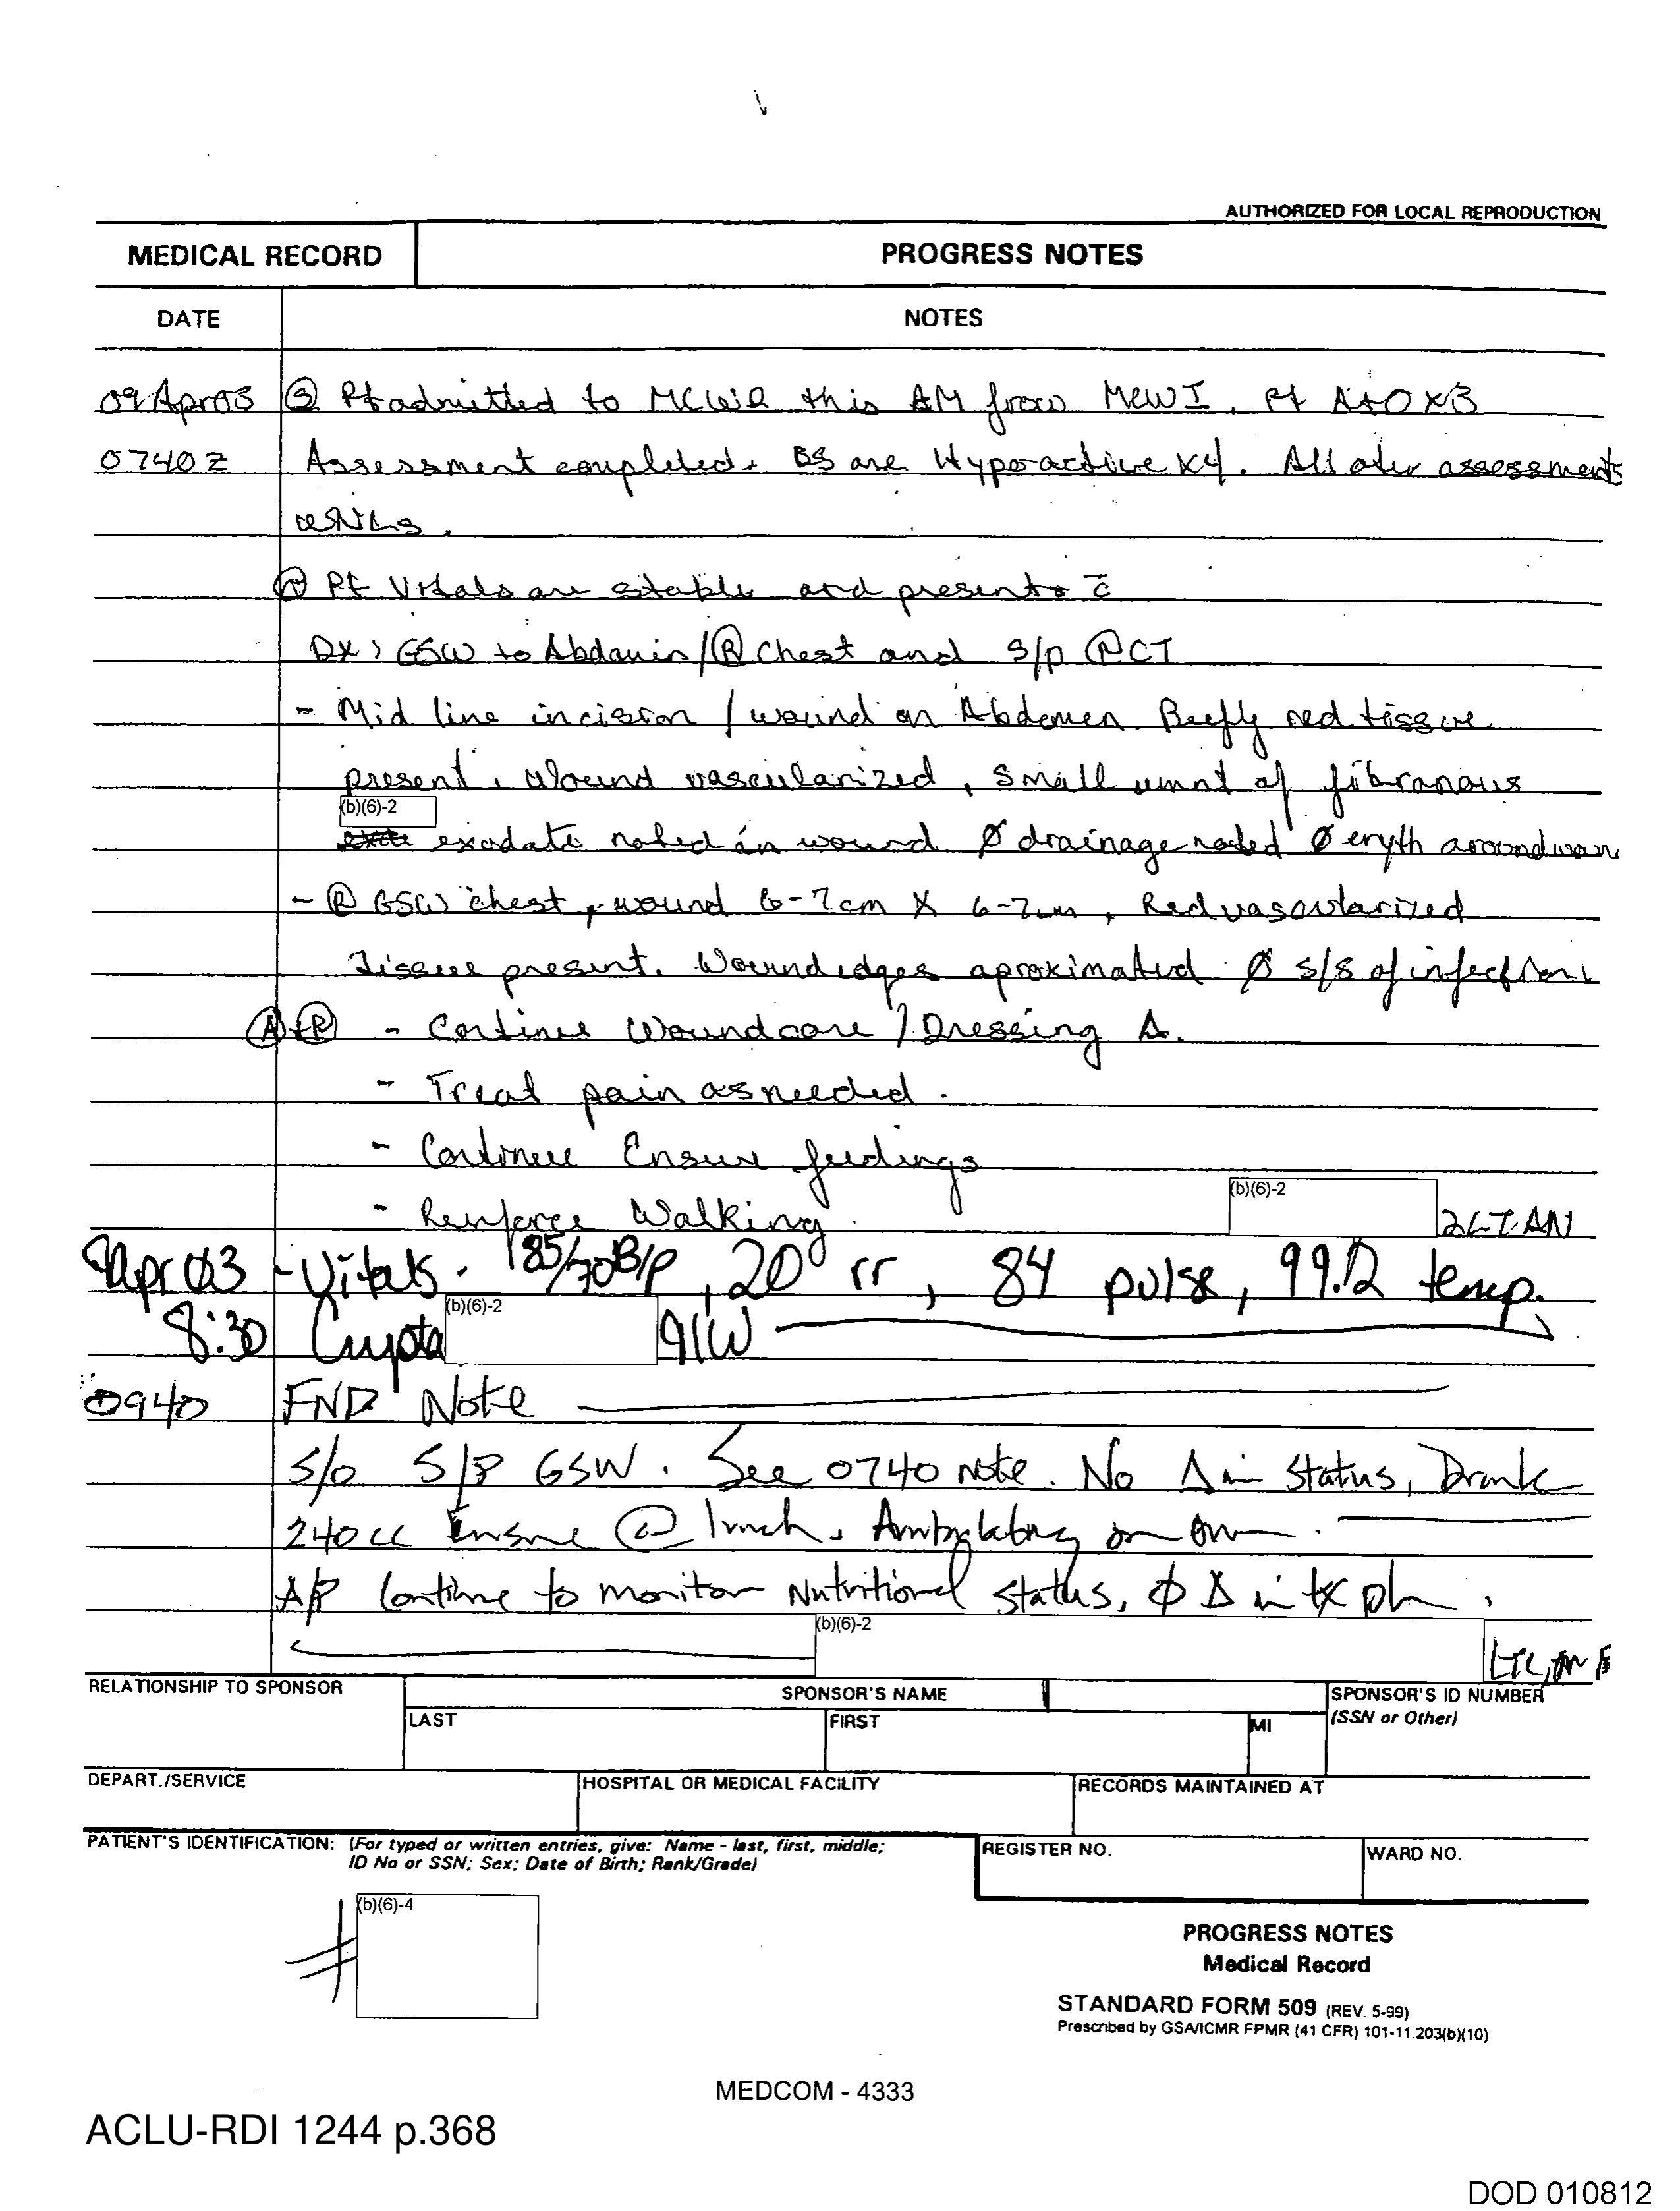 AUTHORIZED FOR LOCAL REPRODUCTION
MEDICAL RECORD PROGRESS NOTES
DATE NOTES
09 Apr 03 Ⓢ Pt admitted to this AM from Pt A+O x3
0740Z Assessment completed. BS are Hypo-active x4. All other assessments
WNLs.
Pt Vitals are stable and presents c̄
Dx: GSW to Abdomin/Ⓡ Chest and S/p Ⓡ CT
- Mid line incision / wound on Abdomen. Beefy red tissue
present. Wound vascularized, small amnt of fibranous
(b)(6)-2
exodate noted in wound Ø drainage noted Ø eryth around woun
- Ⓡ GSW chest, wound 6-7cm X 6-7cm, Red vascularized
Tissue present. Wound edges aproximated Ø s/s of infection
Ⓐ+Ⓟ - Continue Wound care / Dressing Δ.
- Treat pain as needed.
- Continue Ensure feedings
- Reinforce Walking. (b)(6)-2 2LT AN
9Apr 03 - Vitals. 185/70 B/P, 20 rr, 84 pulse, 99.2 temp.
8:30 (b)(6)-2 91W
0940 FNP Note
S/O S/P GSW. See 0740 note. No Δ in status, Drank
240cc Ensure @ lunch. Ambulating on own.
A/P Continue to monitor Nutritional status, Ø Δ in tx pln.
(b)(6)-2 LTC, AN
RELATIONSHIP TO SPONSOR SPONSOR'S NAME SPONSOR'S ID NUMBER
LAST FIRST MI (SSN or Other)
DEPART./SERVICE HOSPITAL OR MEDICAL FACILITY RECORDS MAINTAINED AT
PATIENT'S IDENTIFICATION: (For typed or written entries, give: Name - last, first, middle; REGISTER NO. WARD NO.
ID No or SSN; Sex; Date of Birth; Rank/Grade)
# (b)(6)-4
PROGRESS NOTES
Medical Record
STANDARD FORM 509 (REV. 5-99)
Prescribed by GSA/ICMR FPMR (41 CFR) 101-11.203(b)(10)
MEDCOM - 4333
ACLU-RDI 1244 p.368
DOD 010812